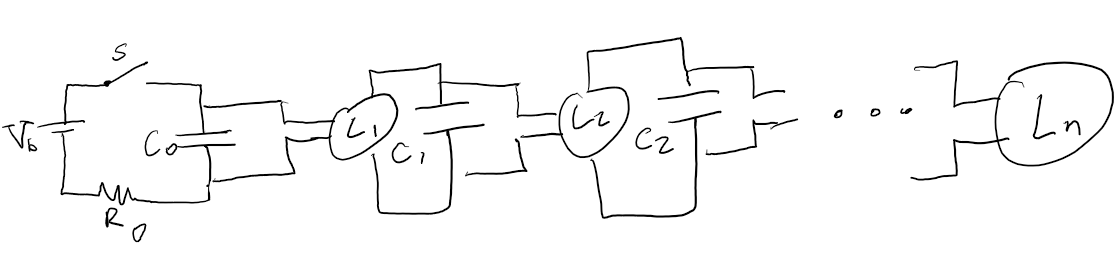 S
V_b
C_0
R_0
L_1
C_1
L_2
C_2
...
L_n